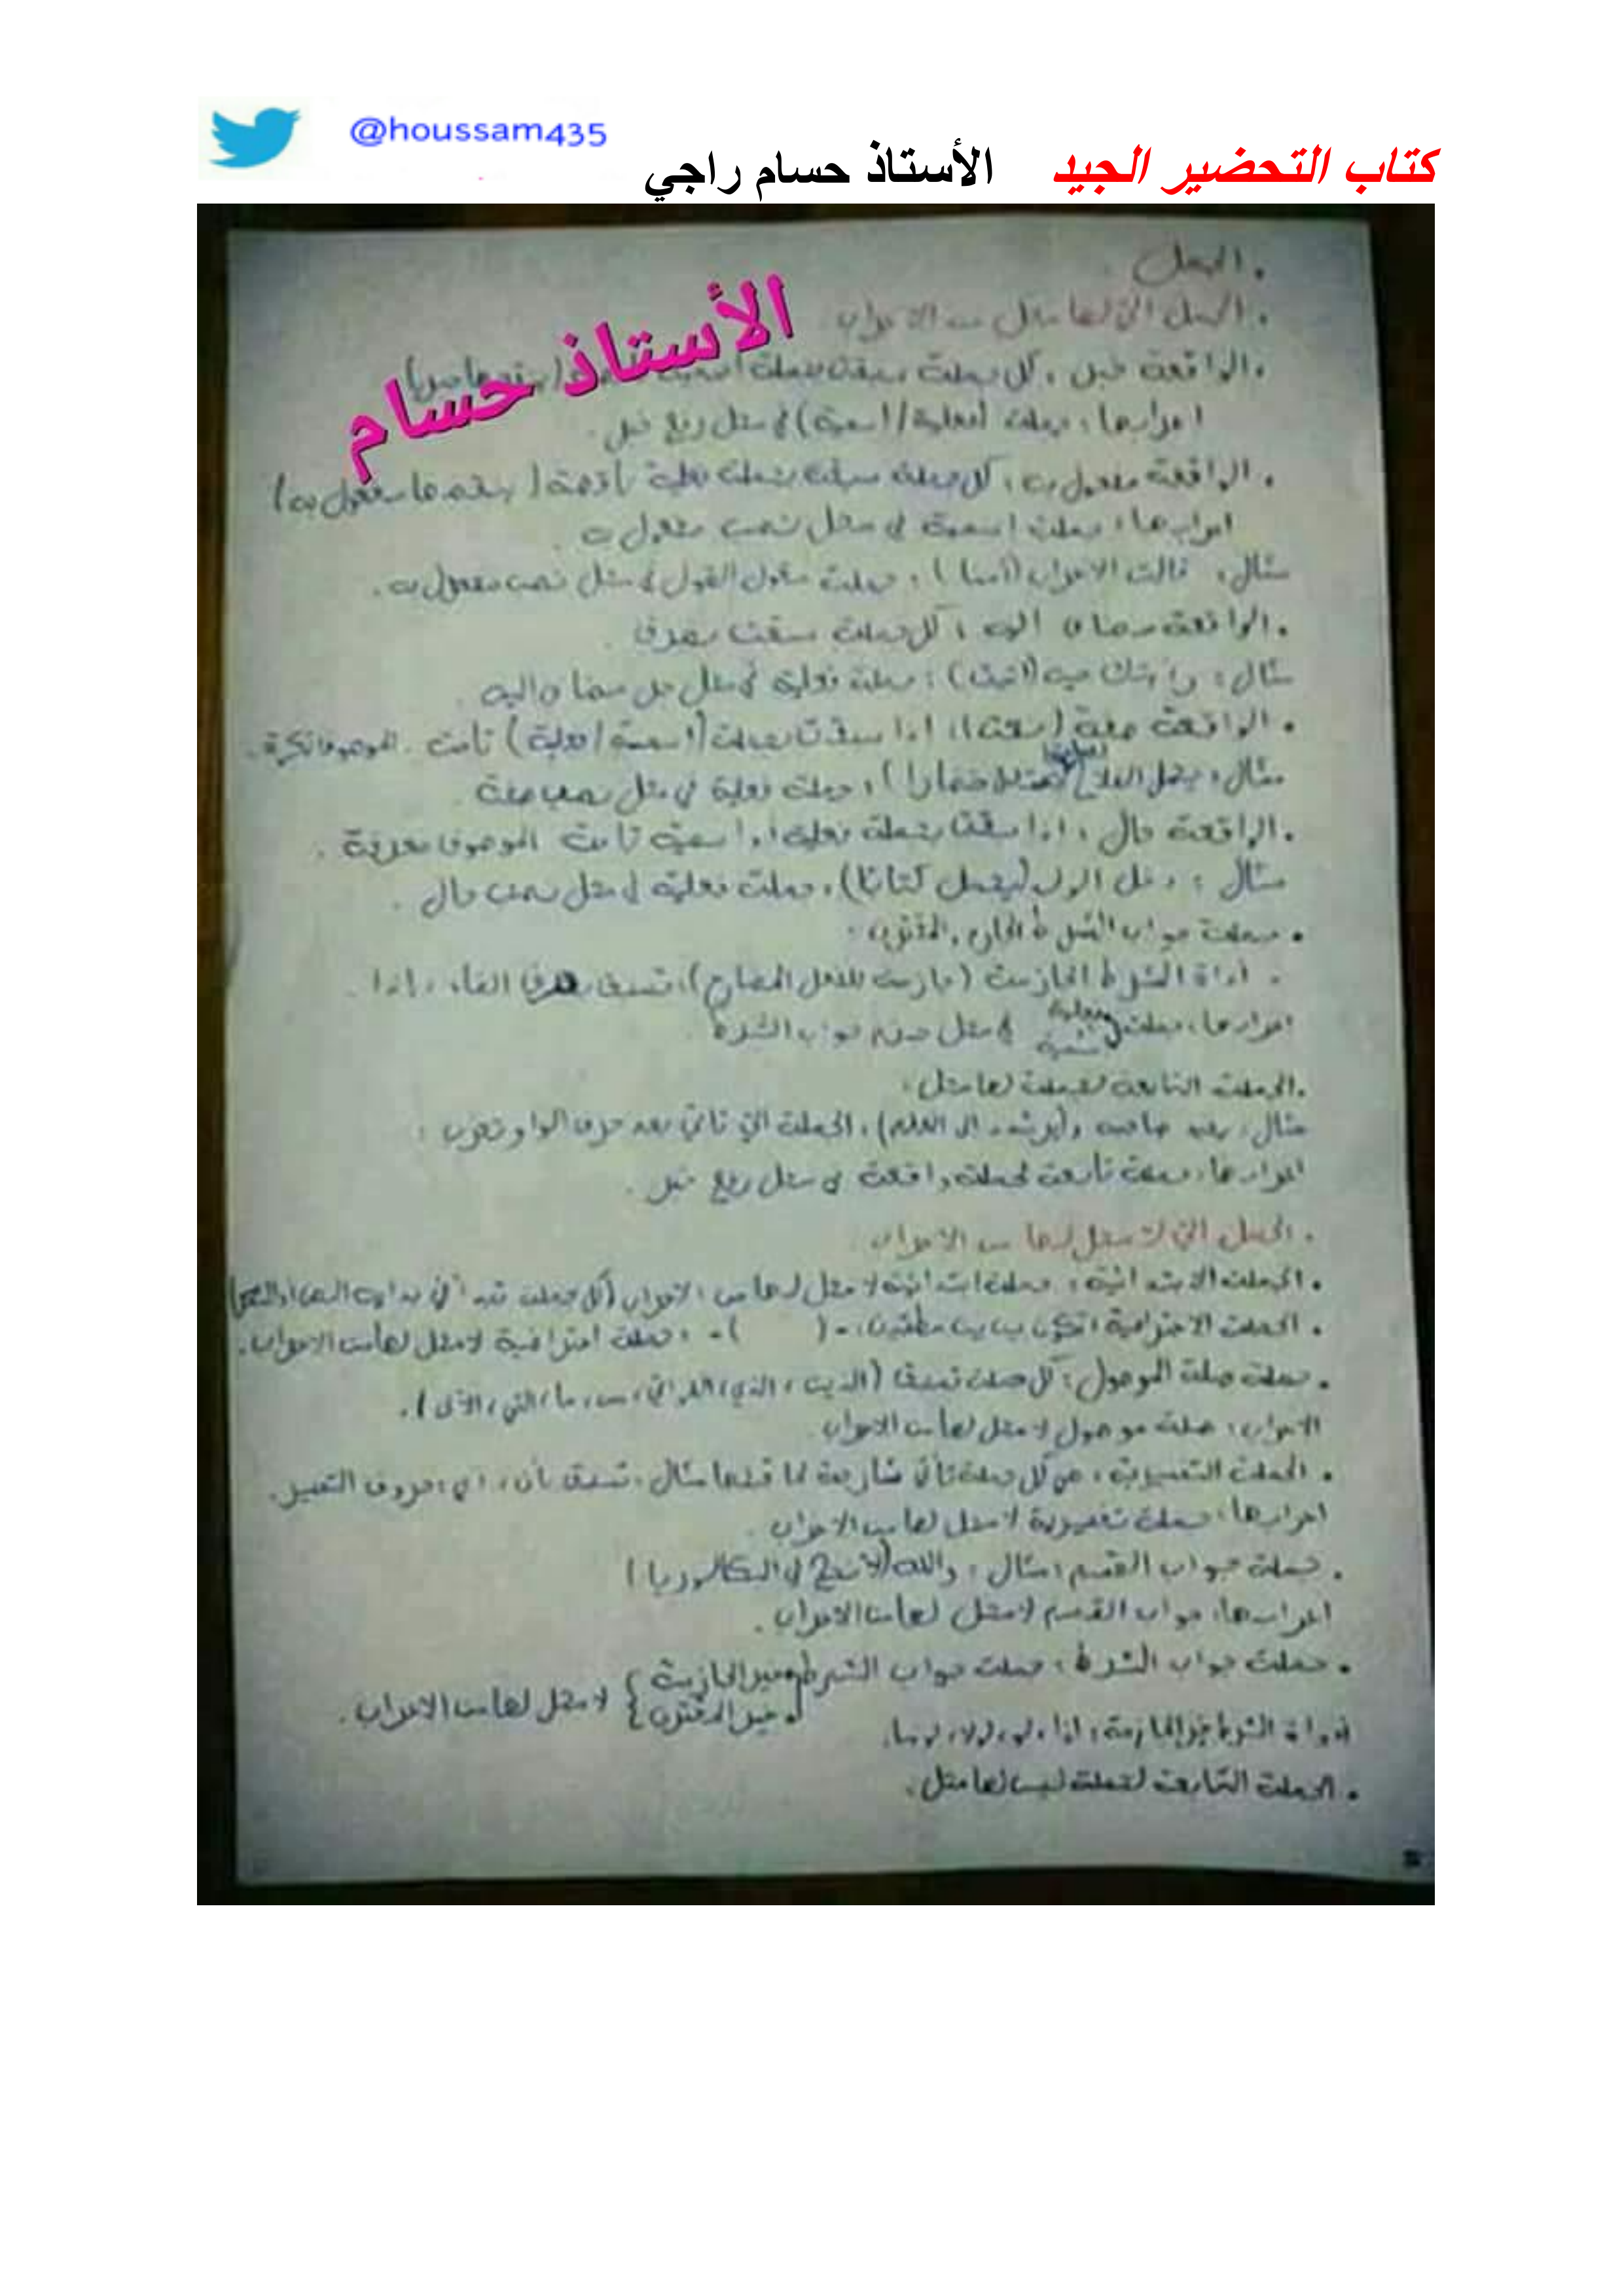 @houssam435
كتاب التحضير الجيد الأستاذ حسام راجي
الأستاذ حسام
. الجمل .
. الجمل التي لها محل من الاعراب .
. الواقعة خبر : كل جملة سبقت بجملة
اعرابها : جملة (فعلية/اسمية) في محل رفع خبر .
. الواقعة مفعول به : كل جملة سبقت بجملة فعلية ناقصة ( ينقصها مفعول به )
اعرابها : جملة اسمية في محل نصب مفعول به .
مثال : قالت الاعراب (آمنا ) : جملة مقول القول في محل نصب مفعول به .
. الواقعة مضاف اليه : كل جملة سبقت بظرف .
مثال : رأيتك حين (أتيت) : جملة فعلية في محل جر مضاف اليه .
. الواقعة صفة (نعت) : اذا سبقت بجملة (اسمية/فعلية ) تامة . الموصوف نكرة .
مثال : يحمل الفلاح خضارا ) : جملة فعلية في محل نصب صفة .
. الواقعة حال : اذا سبقت بجملة فعلية او اسمية تامة الموصوف معرفة .
مثال : دخل الولد (يحمل كتابا) : جملة فعلية في محل نصب حال .
. جملة جواب الشرط الجازم المقترن :
. أداة الشرط الجازمة (جازمة للفعل المضارع) ، تسبق بحرف الفاء ، إذا .
اعرابها : جملة فعلية اسمية في محل جزم جواب الشرط .
. الجملة التابعة لجملة لها محل :
مثال : و(يرشد الى العلم) ، الجملة التي تأتي بعد حرف الواو تعرب :
اعرابها : جملة تابعة لجملة واقعة في محل رفع خبر .
. الجمل التي لا محل لها من الاعراب .
. الجملة الابتدائية : جملة ابتدائية لا محل لها من الاعراب (كل جملة تبدأ في بداية النص
. الجملة الاعتراضية : تكون بين مطتين : -( )- : جملة اعتراضية لا محل لها من الاعراب .
. جملة صلة الموصول : كل جملة تسبق (الذين ، الذي ، اللواتي ، من ، ما ، التي ، الألى ) .
الاعراب : صلة موصول لا محل لها من الاعراب .
. الجملة التفسيرية : هي كل جملة تأتي شارحة لما قبلها مثال : تسبق بأن ، أي : حروف التفسير .
اعرابها : جملة تفسيرية لا محل لها من الاعراب .
. جملة جواب القسم : مثال : والله (لأنجح في البكالوريا )
اعرابها : جواب القسم لا محل لها من الاعراب .
. جملة جواب الشرط : جملة جواب الشرط غير الجازمة
غير المقترن } لا محل لها من الاعراب .
أدوات الشرط غير الجازمة : اذا ، لو ، لولا ، لوما .
. الجملة التابعة لجملة ليس لها محل .